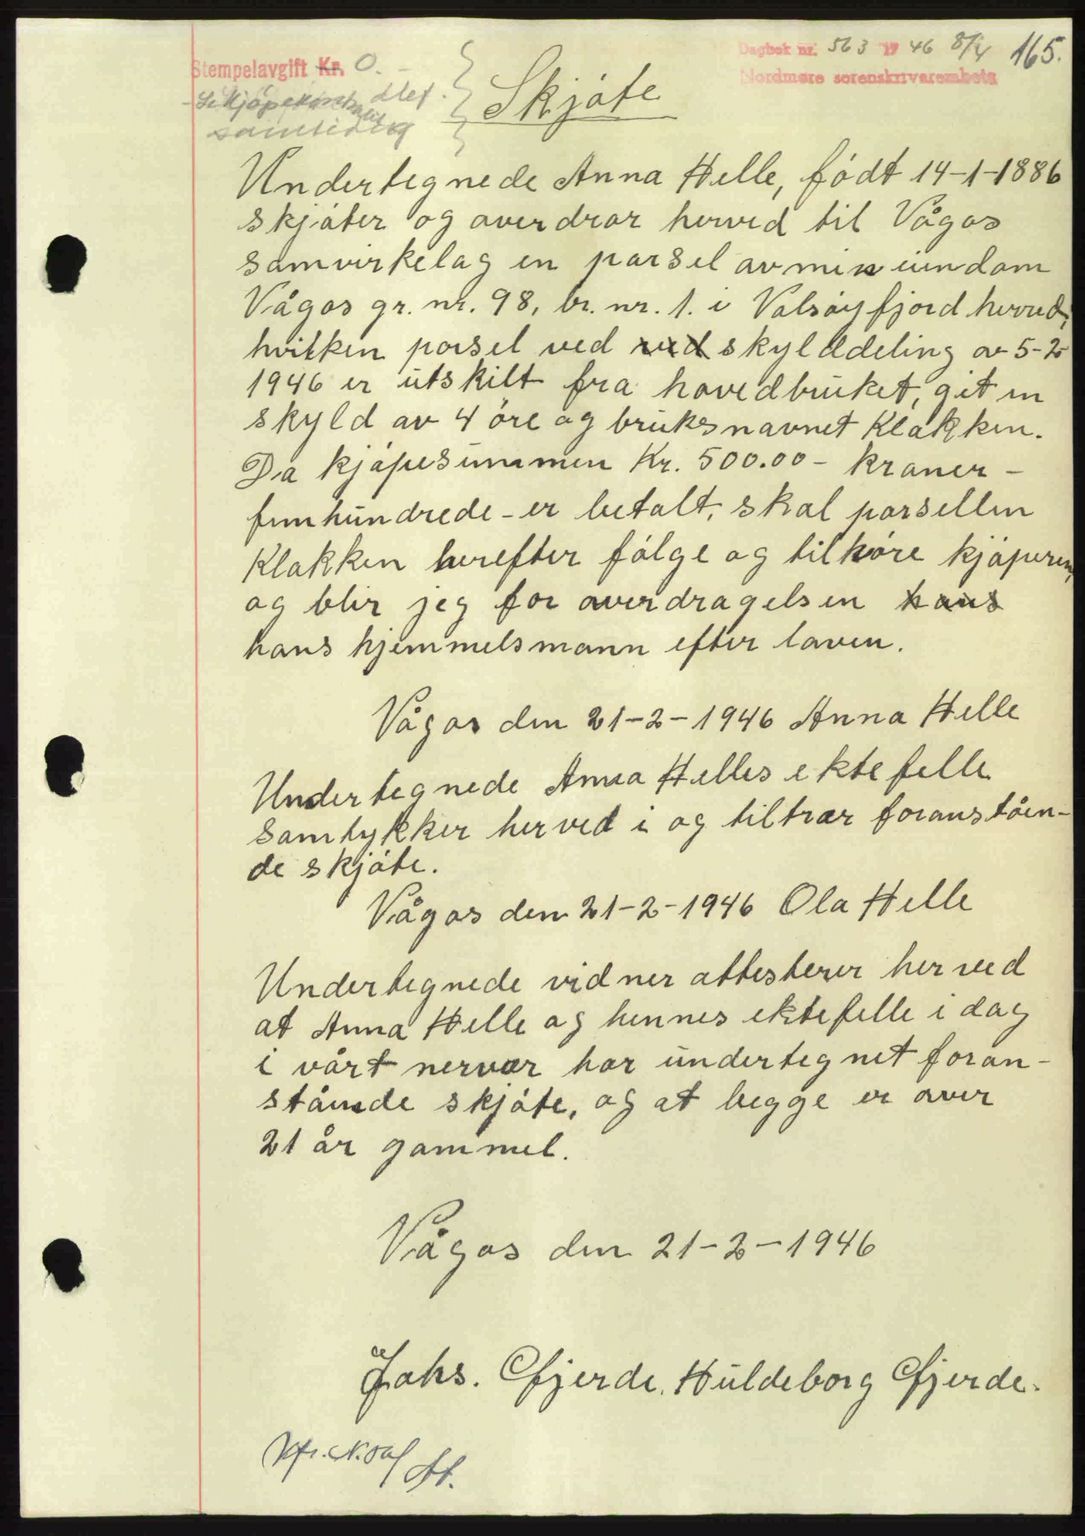 Stempelavgift Kr. 0. -
Dagbok nr. 563 1946 8/4
165.
Nordmøre sorenskriverembete
samtidig
Skjøte
Undertegnede Anna Helle, født 14-1-1886
skjøter og overdrar herved til Vågos
samvirkelag en parsel av min eiendom
Vågos gr. nr. 98, br. nr. 1. i Valsøyfjord herred,
hvilken parsel ved ved skylddeling av 5-2
1946 er utskilt fra hovedbruket, git en
skyld av 4 øre og bruksnavnet Klakken.
Da kjøpesummen Kr. 500.00 - kroner -
femhundrede - er betalt, skal parsellen
Klakken herefter følge og tilhøre kjøperen,
og blir jeg for overdragelsen hans
hans hjemmelsmann efter loven.
Vågos den 21-2-1946 Anna Helle
Undertegnede Anna Helles ektefelle
samtykker herved i og tiltrær foranståen-
de skjøte.
Vågos den 21-2-1946 Ola Helle
Undertegnede vidner attesterer herved
at Anna Helle og hennes ektefelle i dag
i vårt nervær har undertegnet foran-
stående skjøte, og at begge er over
21 år gammel.
Vågos den 21-2-1946
Johs. Gjerde. Huldeborg Gjerde.